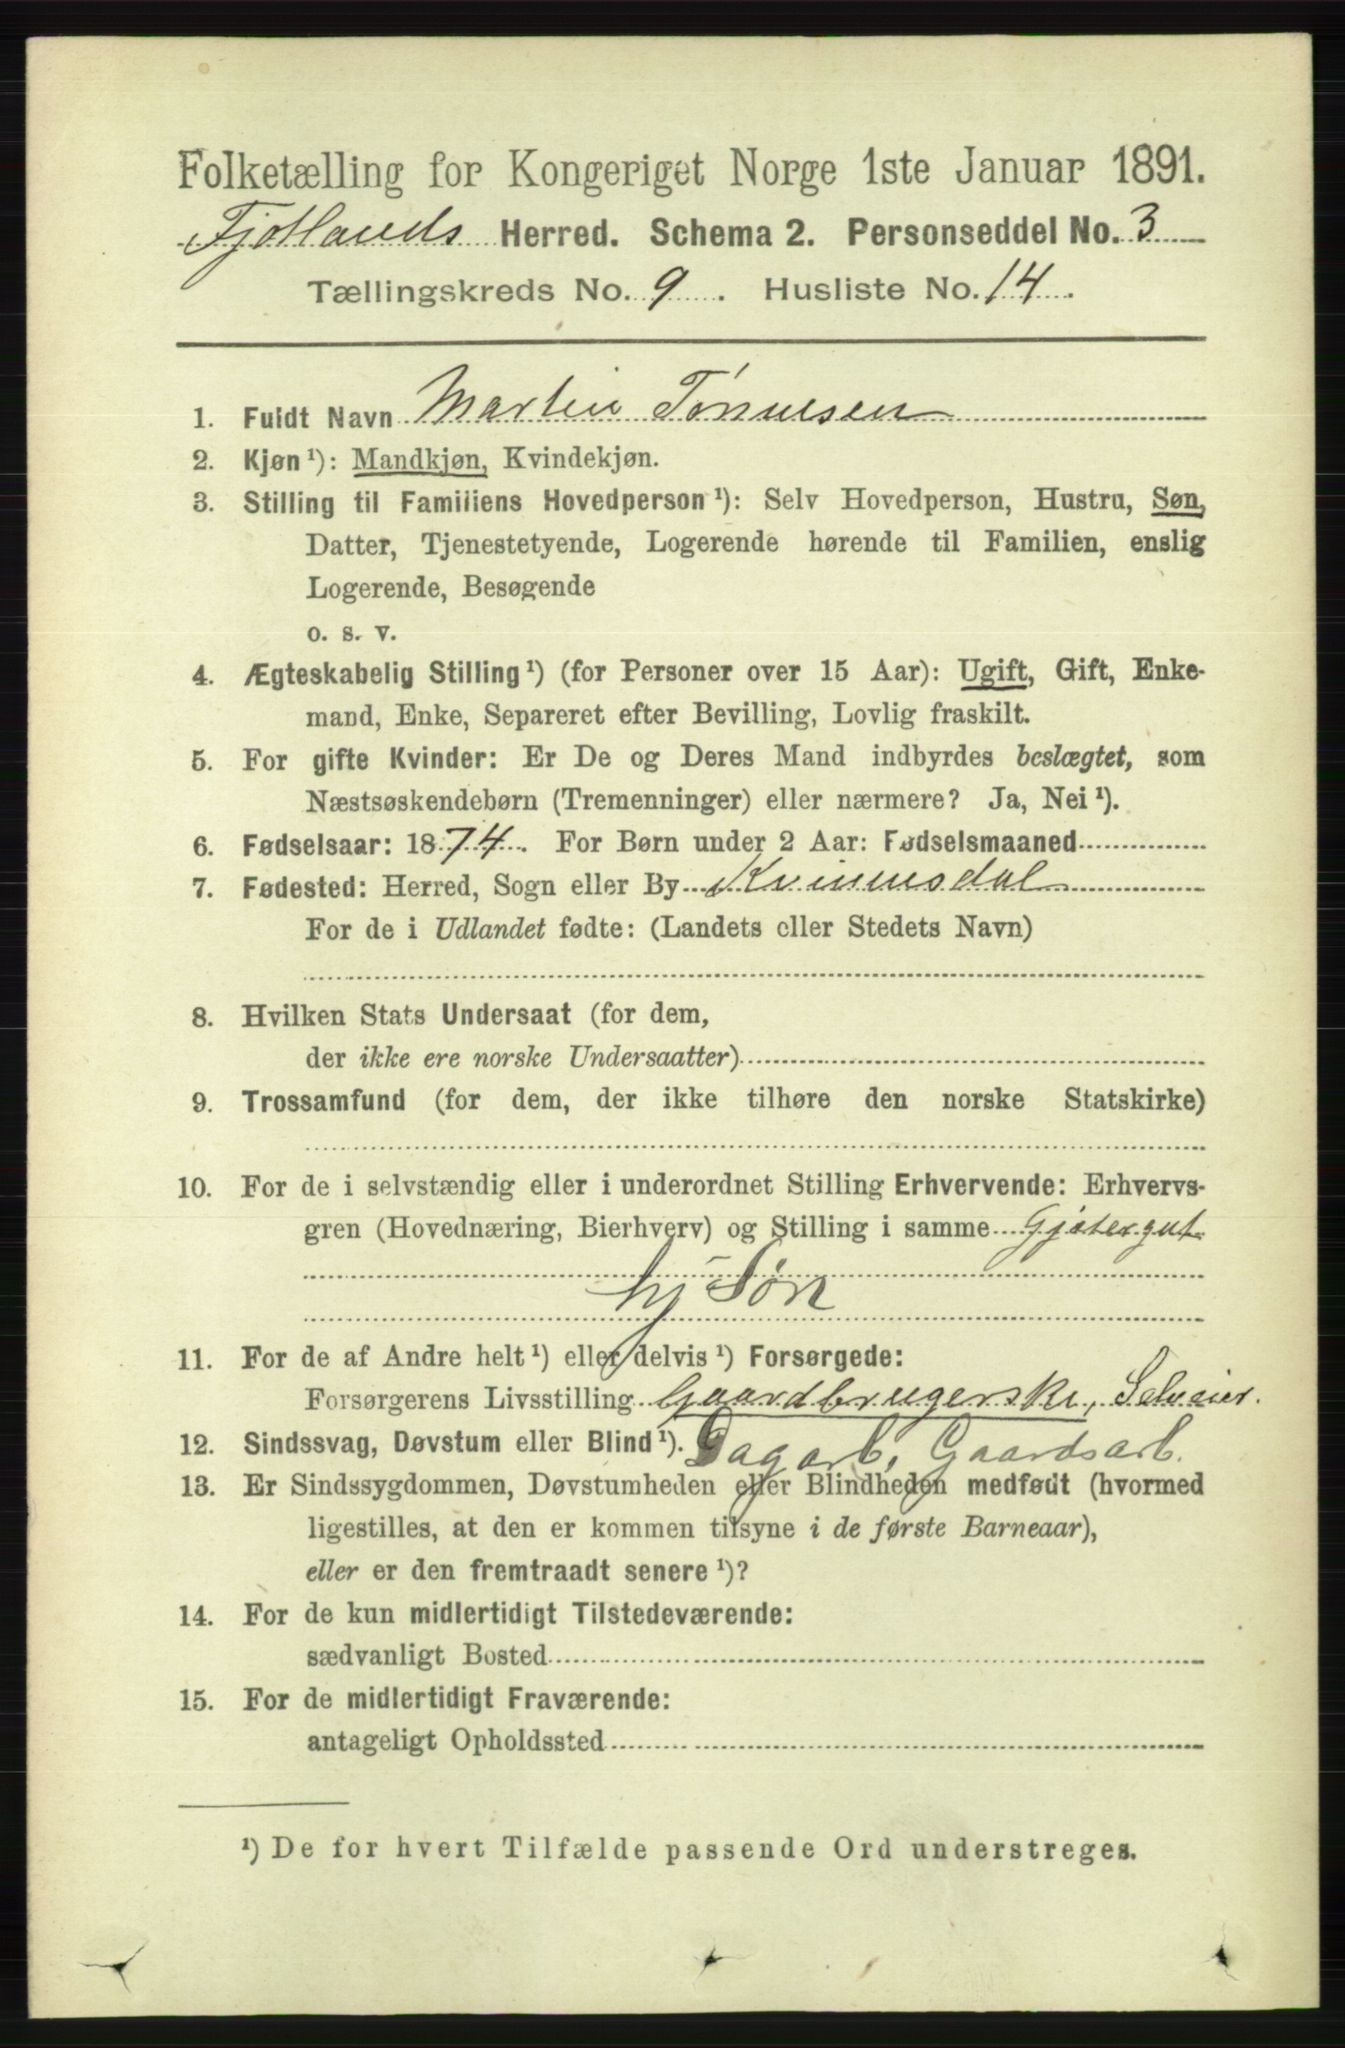 Folketælling for Kongeriget Norge 1ste Januar 1891.
Fjotlands Herred. Schema 2. Personseddel No. 3
Tællingskreds No. 9. Husliste No. 14.
1. Fuldt Navn Martin Tønnesen
2. Kjøn ¹): Mandkjøn, Kvindekjøn.
3. Stilling til Familiens Hovedperson ¹): Selv Hovedperson, Hustru, Søn,
Datter, Tjenestetyende, Logerende hørende til Familien, enslig
Logerende, Besøgende
o. s. v.
4. Ægteskabelig Stilling ¹) (for Personer over 15 Aar): Ugift, Gift, Enke-
mand, Enke, Separeret efter Bevilling, Lovlig fraskilt.
5. For gifte Kvinder: Er De og Deres Mand indbyrdes beslægtet, som
Næstsøskendebørn (Tremenninger) eller nærmere? Ja, Nei ¹).
6. Fødselsaar: 1874. For Børn under 2 Aar: Fødselsmaaned
7. Fødested: Herred, Sogn eller By Kvinnesdal
For de i Udlandet fødte: (Landets eller Stedets Navn)
8. Hvilken Stats Undersaat (for dem,
der ikke ere norske Undersaatter)
9. Trossamfund (for dem, der ikke tilhøre den norske Statskirke)
10. For de i selvstændig eller i underordnet Stilling Erhvervende: Erhvervs-
gren (Hovednæring, Bierhverv) og Stilling i samme Gjætergut
hj Søn
11. For de af Andre helt ¹) eller delvis ¹) Forsørgede:
Forsørgerens Livsstilling Gaardbrugerske, Selveier.
12. Sindssvag, Døvstum eller Blind ¹). Dagarb, Gaardsarb.
13. Er Sindssygdommen, Døvstumheden eller Blindheden medfødt (hvormed
ligestilles, at den er kommen tilsyne i de første Barneaar),
eller er den fremtraadt senere ¹)?
14. For de kun midlertidigt Tilstedeværende:
sædvanligt Bosted
15. For de midlertidigt Fraværende:
antageligt Opholdssted
¹) De for hvert Tilfælde passende Ord understreges.